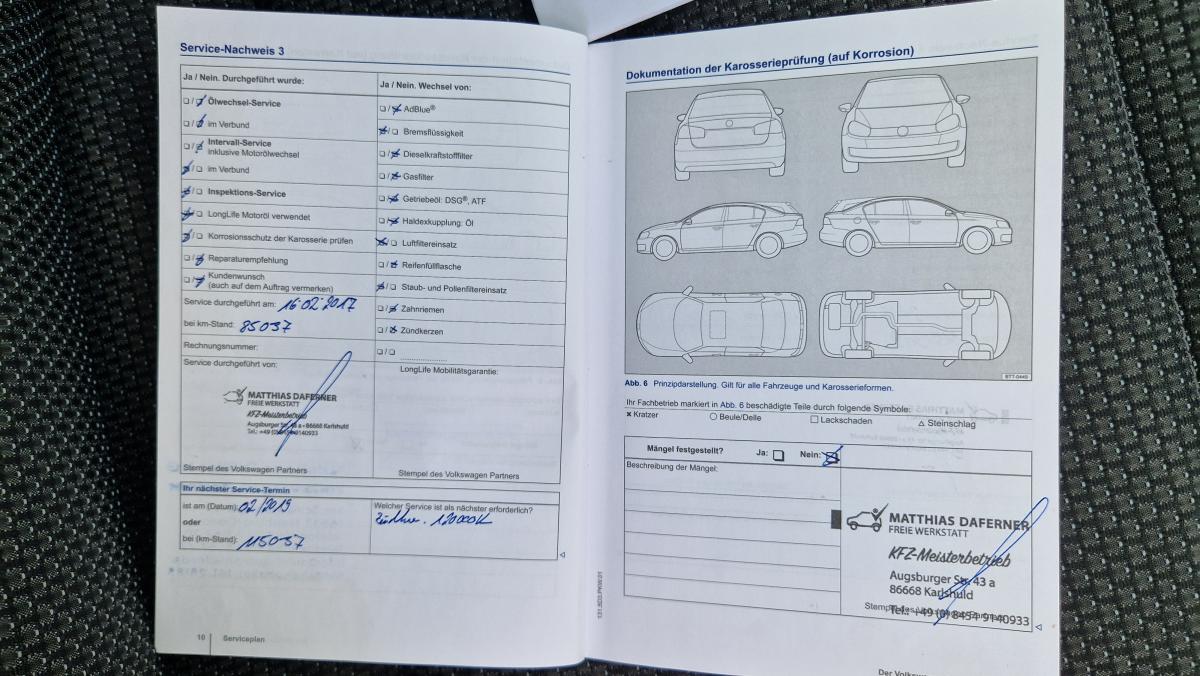 Service-Nachweis 3
Ja / Nein. Durchgeführt wurde:
❏ / ❏ Ölwechsel-Service
❏ / ❏ im Verbund
❏ / ❏ Intervall-Service
inklusive Motorölwechsel
❏ / ❏ im Verbund
❏ / ❏ Inspektions-Service
❏ / ❏ LongLife Motoröl verwendet
❏ / ❏ Korrosionsschutz der Karosserie prüfen
❏ / ❏ Reparaturempfehlung
❏ / ❏ Kundenwunsch
(auch auf dem Auftrag vermerken)
Service durchgeführt am: 16 02 2017
bei km-Stand: 85037
Rechnungsnummer:
Service durchgeführt von:
MATTHIAS DAFERNER
FREIE WERKSTATT
KFZ-Meisterbetrieb
Augsburger Str. 43 a • 86668 Karlshuld
Tel.: +49 (0) 8454 9140933
Stempel des Volkswagen Partners
Ja / Nein. Wechsel von:
❏ / ❏ AdBlue®
❏ / ❏ Bremsflüssigkeit
❏ / ❏ Dieselkraftstofffilter
❏ / ❏ Gasfilter
❏ / ❏ Getriebeöl: DSG®, ATF
❏ / ❏ Haldexkupplung: Öl
❏ / ❏ Luftfiltereinsatz
❏ / ❏ Reifenfüllflasche
❏ / ❏ Staub- und Pollenfiltereinsatz
❏ / ❏ Zahnriemen
❏ / ❏ Zündkerzen
❏ / ❏
LongLife Mobilitätsgarantie:
Stempel des Volkswagen Partners
Ihr nächster Service-Termin
ist am (Datum): 02/2019
oder
bei (km-Stand): 115037
Welcher Service ist als nächster erforderlich?
120000
10 Serviceplan
Dokumentation der Karosserieprüfung (auf Korrosion)
BTT-0449
Abb. 6 Prinzipdarstellung. Gilt für alle Fahrzeuge und Karosserieformen.
Ihr Fachbetrieb markiert in Abb. 6 beschädigte Teile durch folgende Symbole:
× Kratzer ○ Beule/Delle □ Lackschaden △ Steinschlag
Mängel festgestellt? Ja: ❏ Nein: ❏
Beschreibung der Mängel:
MATTHIAS DAFERNER
FREIE WERKSTATT
KFZ-Meisterbetrieb
Augsburger Str. 43 a
86668 Karlshuld
Tel.: +49 (0) 8454 9140933
131.5D3.PKW.01
Der Volksw